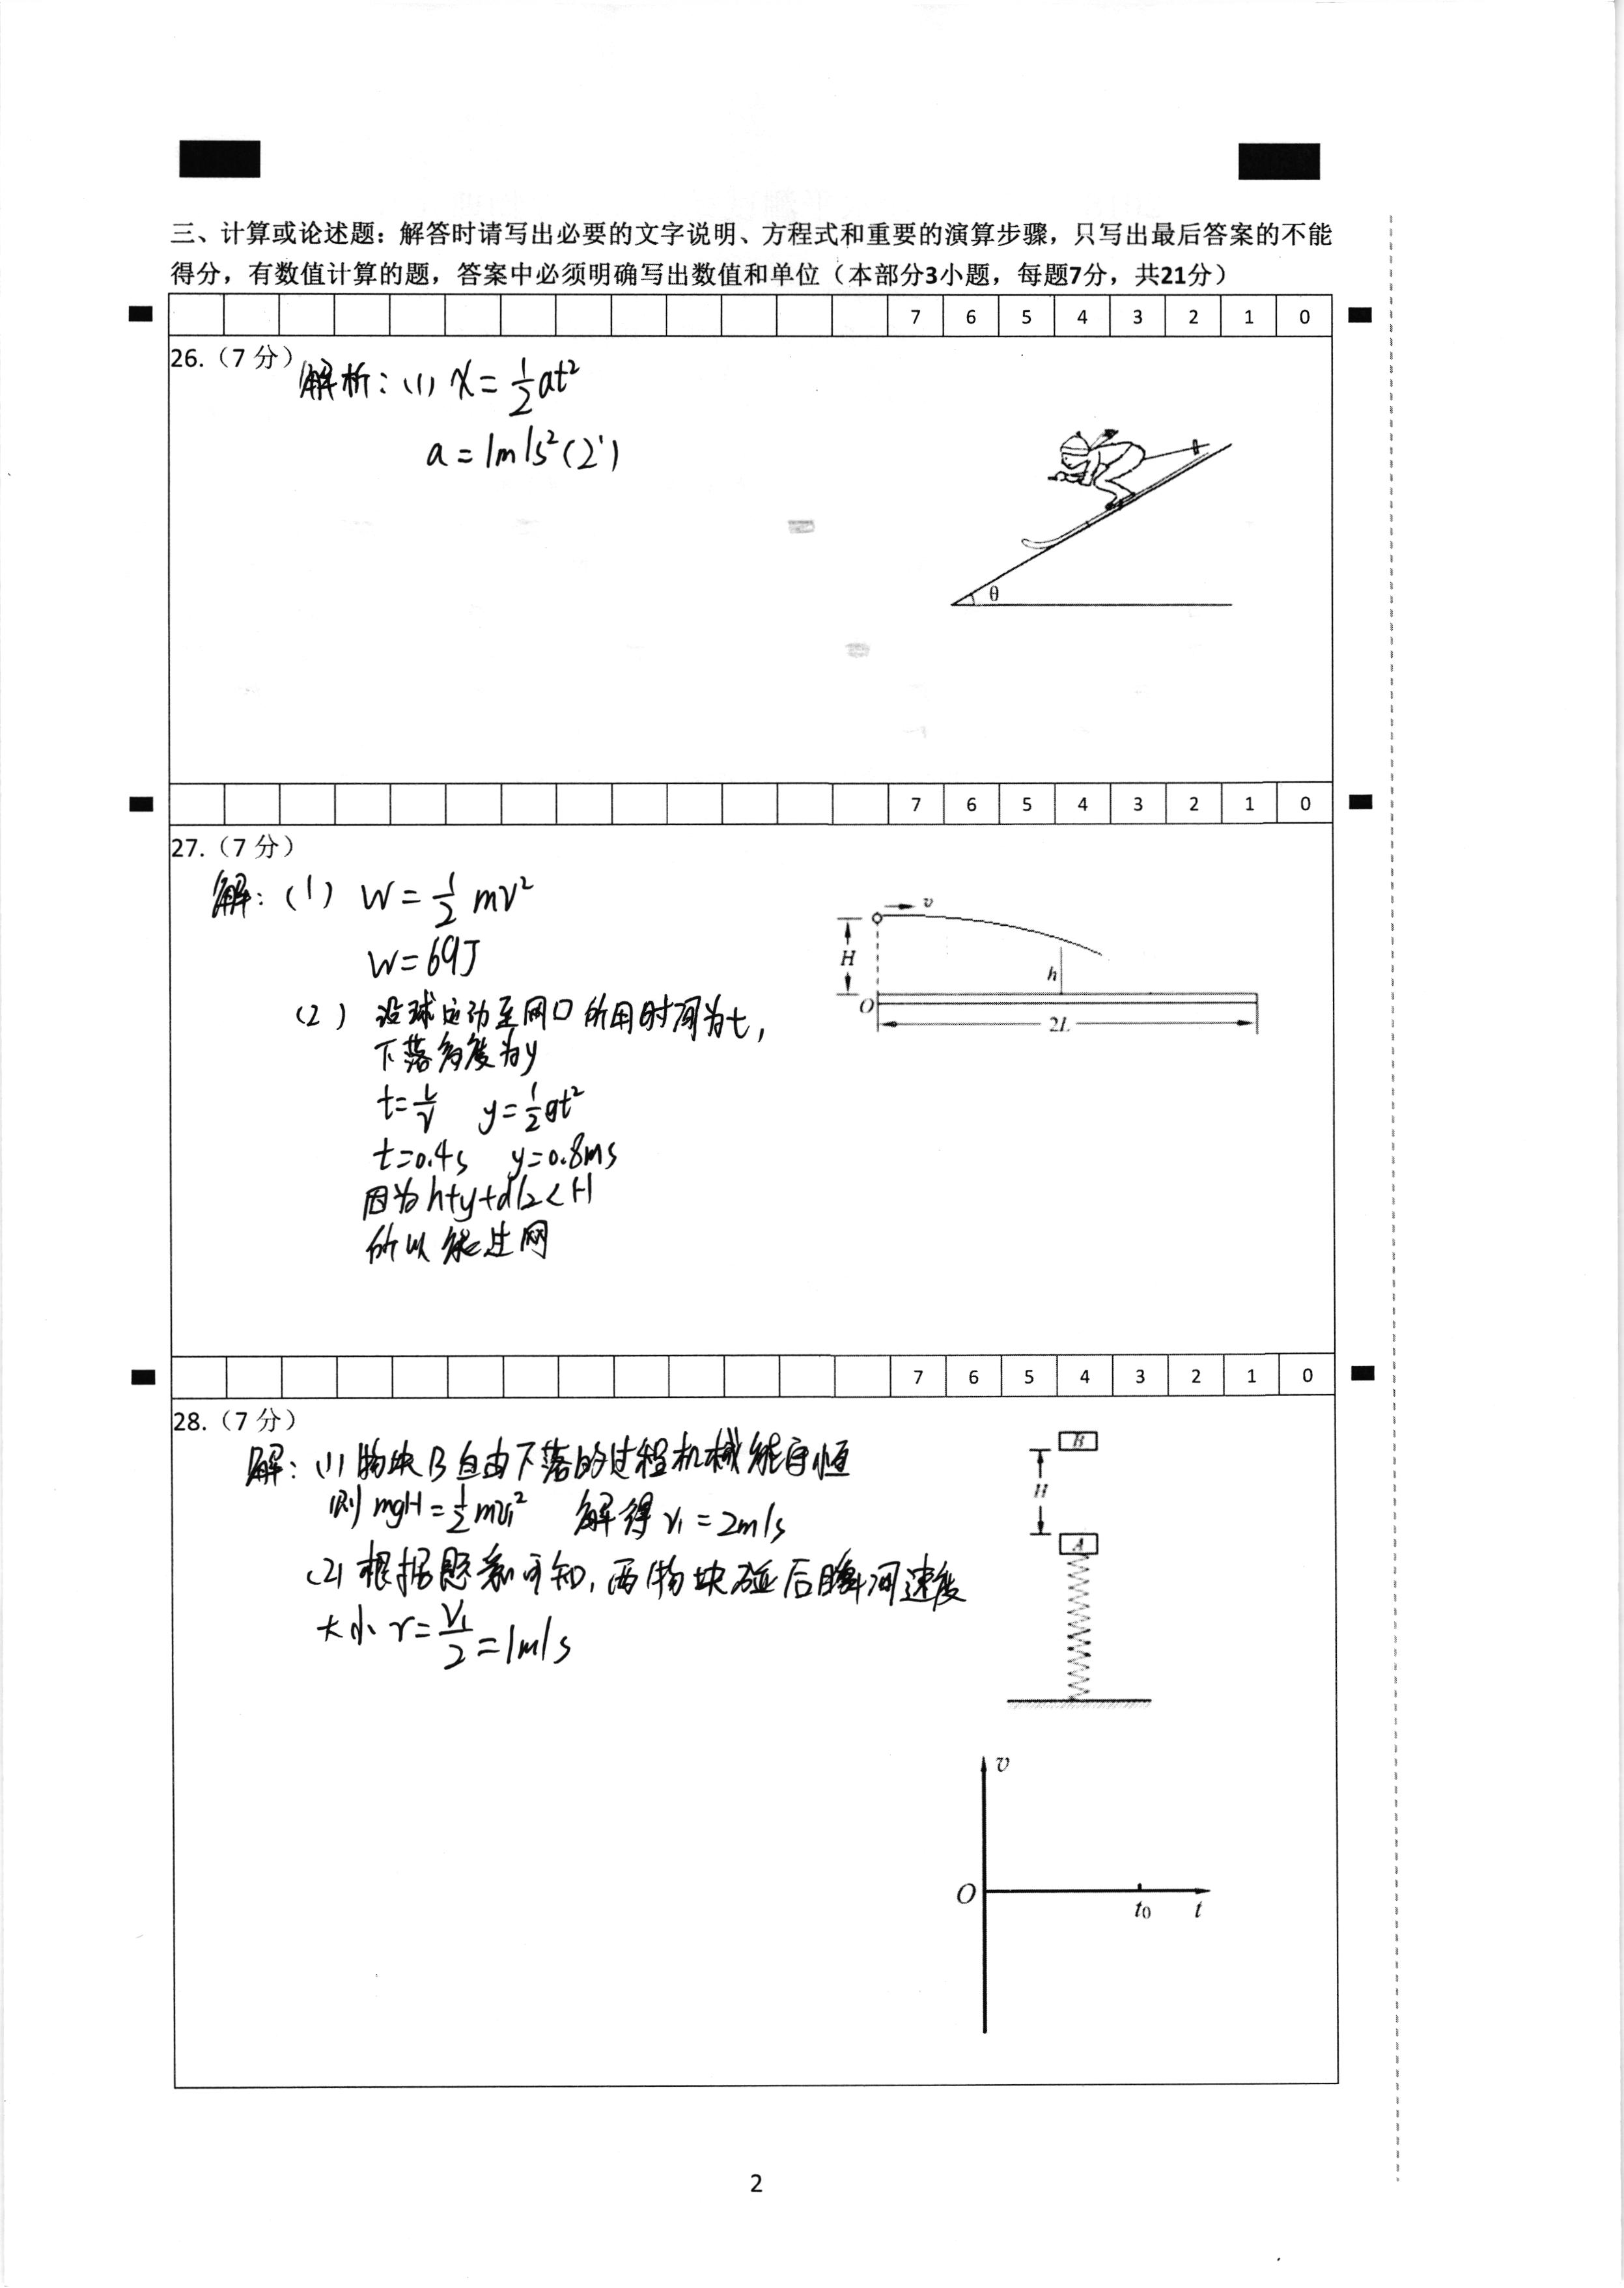 三、计算或论述题：解答时请写出必要的文字说明、方程式和重要的演算步骤，只写出最后答案的不能
得分，有数值计算的题，答案中必须明确写出数值和单位（本部分3小题，每题7分，共21分）
7 6 5 4 3 2 1 0
26.（7 分）
解析：(1) x = 1/2 at²
a = 1m/s² (2')
θ
7 6 5 4 3 2 1 0
27.（7 分）
解：(1) W = 1/2 mv²
W = 69J
(2) 设球运动至网口所用时间为t，
下落高度为y
t = L/v y = 1/2 gt²
t=0.4s y=0.8ms
因为h+y+d/2<H
所以能过网
v
H
h
O
2L
7 6 5 4 3 2 1 0
28.（7 分）
解：(1) 物块B自由下落的过程机械能守恒
则 mgH = 1/2 mv₁² 解得 v₁ = 2m/s
(2) 根据题意可知，两物块碰后瞬间速度
大小 v = v₁/2 = 1m/s
B
H
A
v
O
t₀ t
2